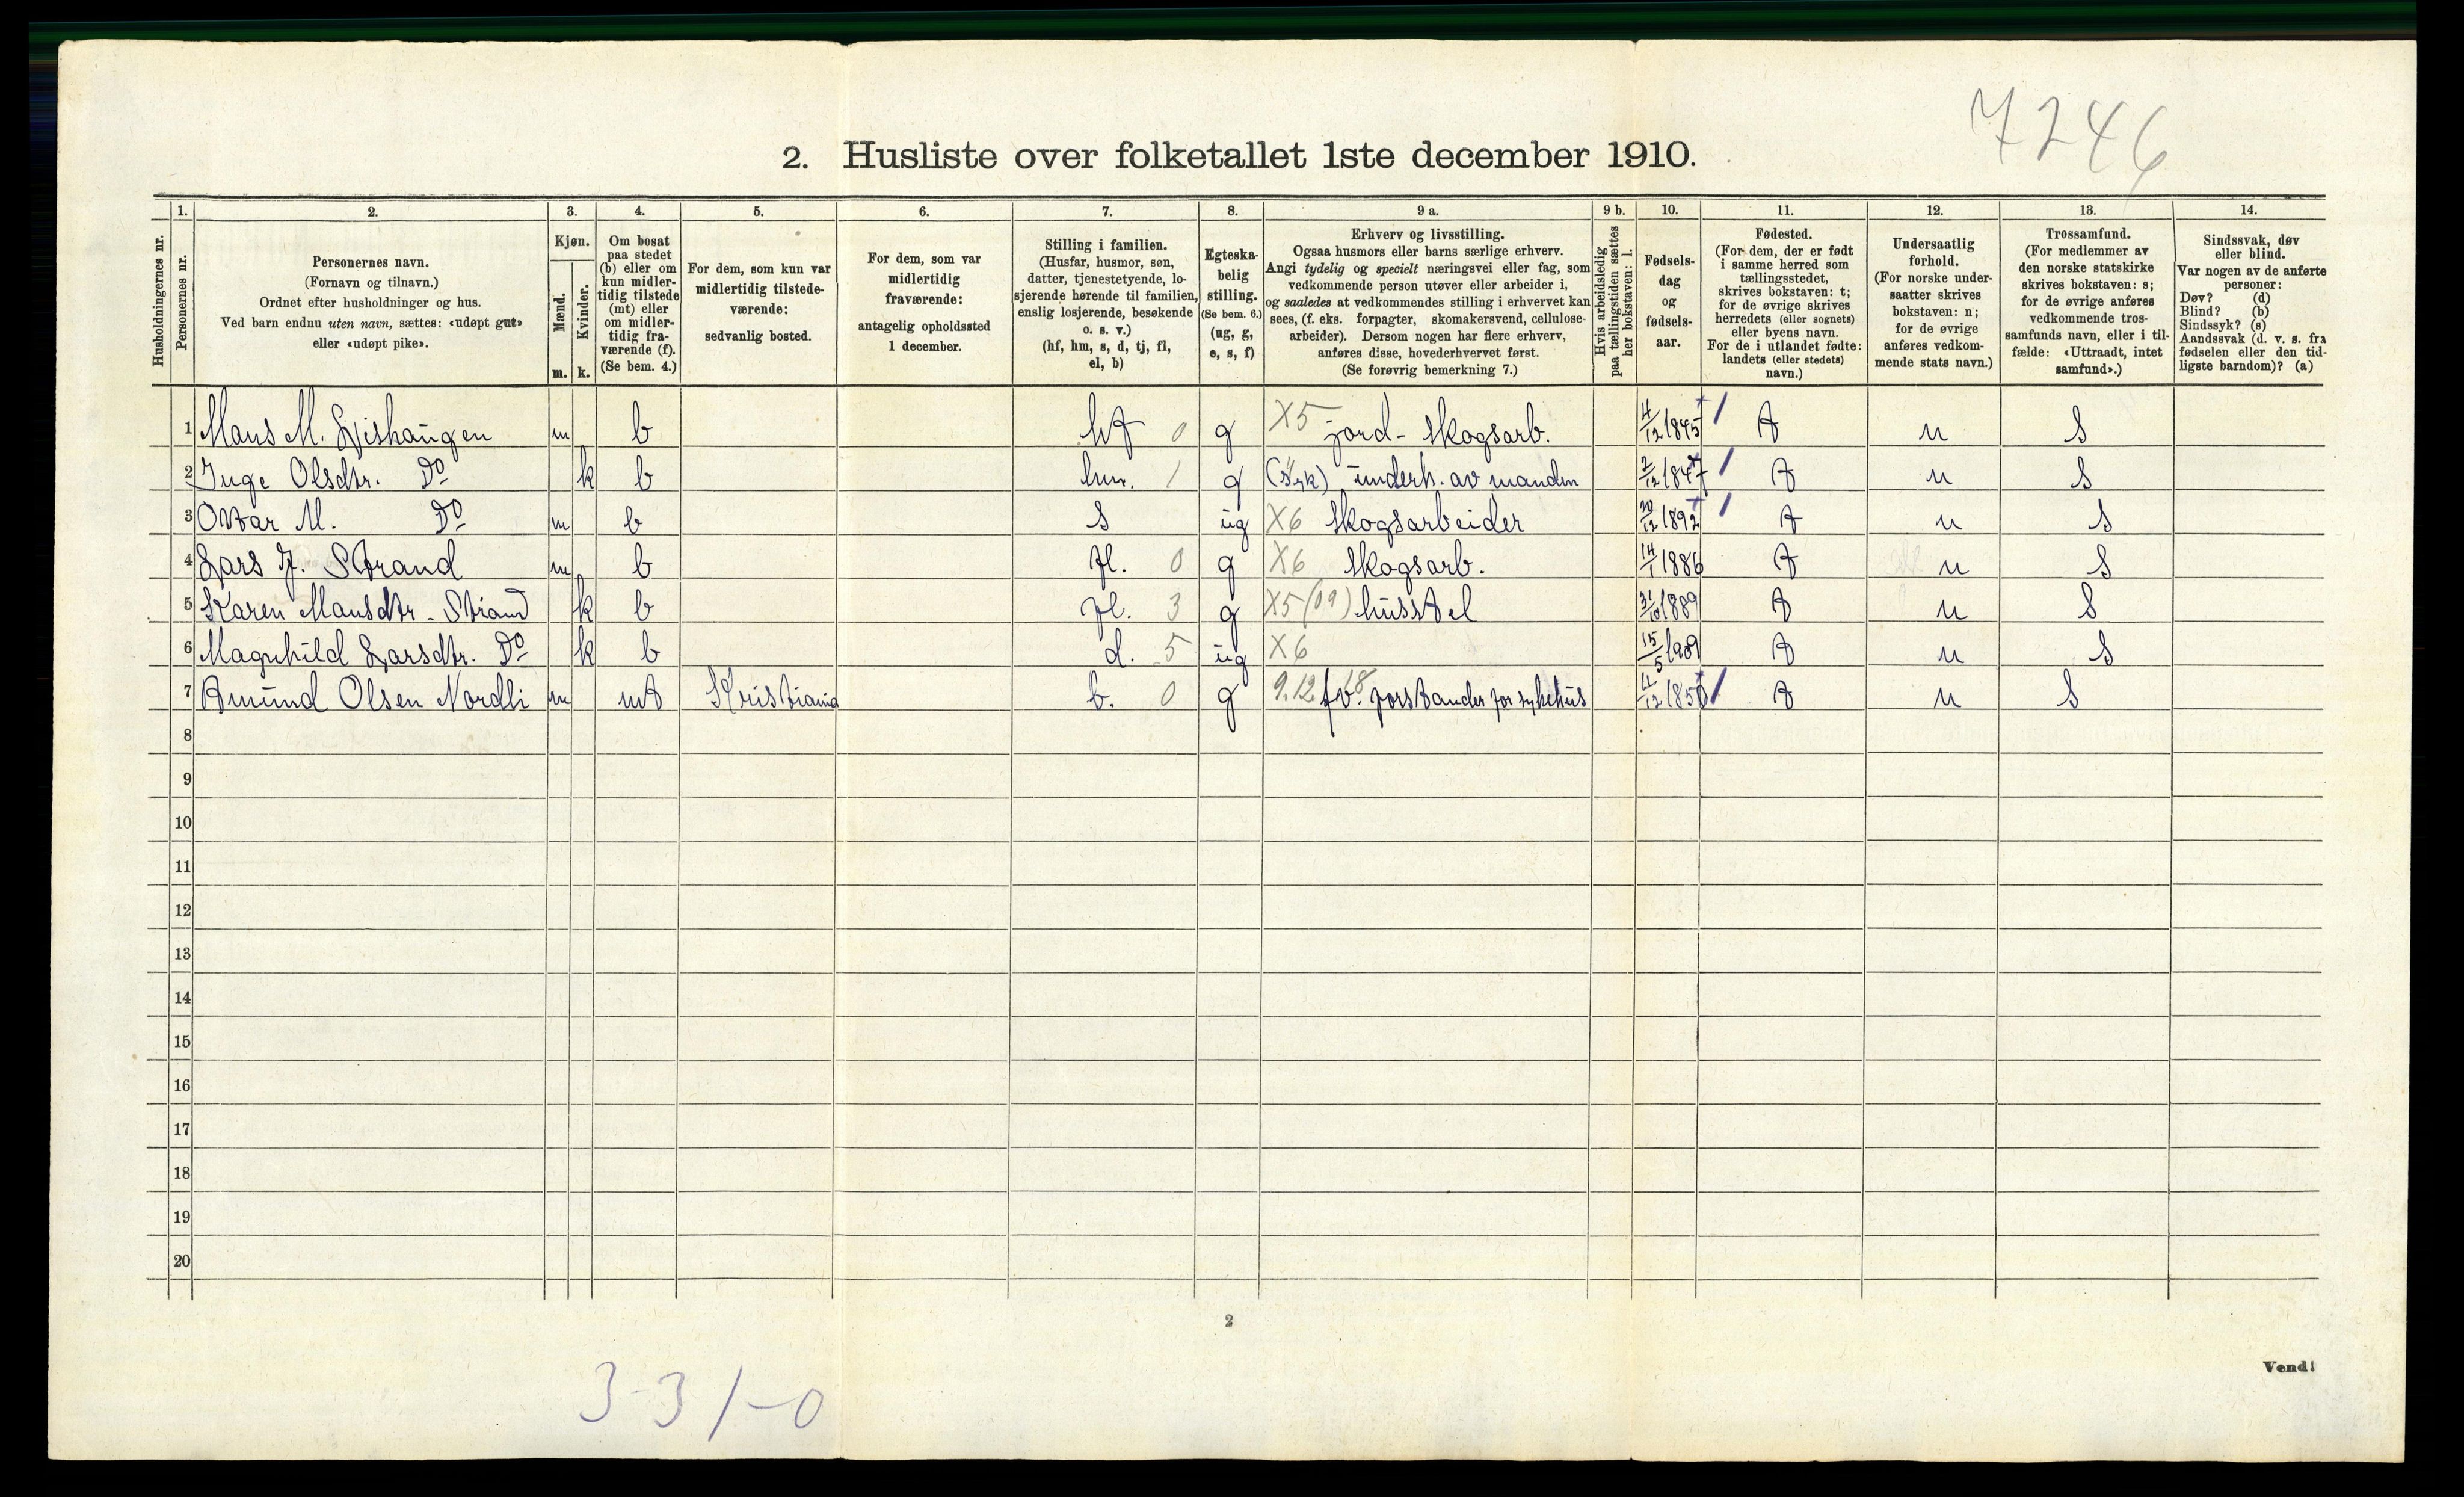 7246
2. Husliste over folketallet 1ste december 1910.
Husholdningernes nr.
1. Personernes nr.
2. Personernes navn. (Fornavn og tilnavn.) Ordnet efter husholdninger og hus. Ved barn endnu uten navn, sættes: «udøpt gut» eller «udøpt pike».
3. Kjøn. Mænd. m. Kvinder. k.
4. Om bosat paa stedet (b) eller om kun midlertidig tilstede (mt) eller om midlertidig fraværende (f). (Se bem. 4.)
5. For dem, som kun var midlertidig tilstedeværende: sedvanlig bosted.
6. For dem, som var midlertidig fraværende: antagelig opholdssted 1 december.
7. Stilling i familien. (Husfar, husmor, søn, datter, tjenestetyende, losjerende hørende til familien, enslig losjerende, besøkende o. s. v.) (hf, hm, s, d, tj, fl, el, b)
8. Egteskabelig stilling. (Se bem. 6.) (ug, g, e, s, f)
9 a. Erhverv og livsstilling. Ogsaa husmors eller barns særlige erhverv. Angi tydelig og specielt næringsvei eller fag, som vedkommende person utøver eller arbeider i, og saaledes at vedkommendes stilling i erhvervet kan sees, (f. eks. forpagter, skomakersvend, cellulosearbeider). Dersom nogen har flere erhverv, anføres disse, hovederhvervet først. (Se forøvrig bemerkning 7.)
9 b. Hvis arbeidsledig paa tællingstiden sættes her bokstaven: l.
10. Fødselsdag og fødselsaar.
11. Fødested. (For dem, der er født i samme herred som tællingsstedet, skrives bokstaven: t; for de øvrige skrives herredets (eller sognets) eller byens navn. For de i utlandet fødte: landets (eller stedets) navn.)
12. Undersaatlig forhold. (For norske undersaatter skrives bokstaven: n; for de øvrige anføres vedkommende stats navn.)
13. Trossamfund. (For medlemmer av den norske statskirke skrives bokstaven: s; for de øvrige anføres vedkommende trossamfunds navn, eller i tilfælde: «Uttraadt, intet samfund».)
14. Sindssvak, døv eller blind. Var nogen av de anførte personer: Døv? (d) Blind? (b) Sindssyk? (s) Aandssvak (d. v. s. fra fødselen eller den tidligste barndom)? (a)
1 Mans M. m b hf 0 g X5 jord- skogsarb. 4/12 1845 t n s
2 Inge Olsdtr. Do k b hm. 1 g (syk) underh. av manden 2/12 1847 t n s
3 Ottar M. Do m b s ug X6 skogsarbeider 20/12 1892 t n s
4 Lars J. Strand m b fl. 0 g X6 skogsarb. 14/1 1886 t n s
5 Karen Mansdtr. Strand k b fl. 3 g X5 (09) husstel 31/10 1889 t n s
6 Magnhild Larsdtr. Do k b d. 5 ug X6 15/5 1909 t n s
7 Amund Olsen Nordli m mt Kristiania b. 0 g 9.12 18 fv. forstander for sykehus 11/12 1850 t n s
8
9
10
11
12
13
14
15
16
17
18
19
20
2
Vend!
3-3 1-0